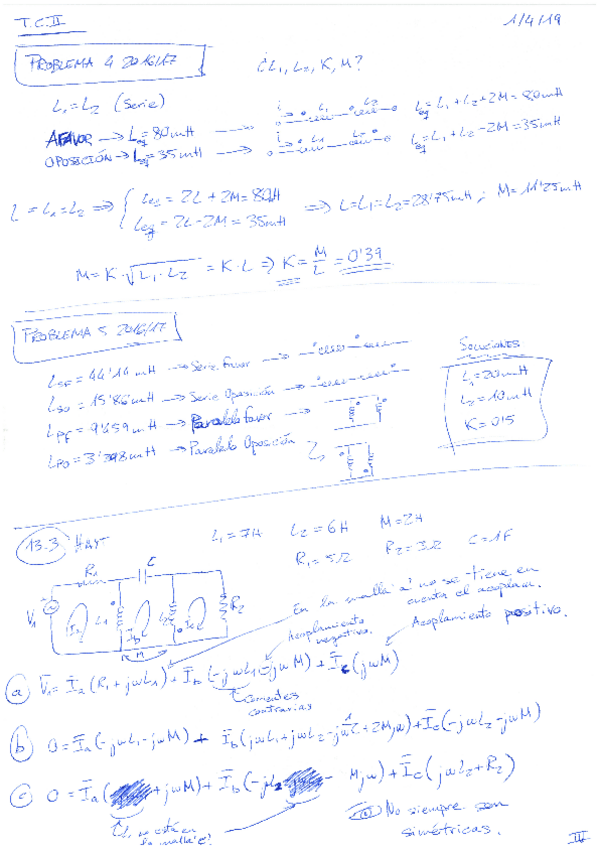 T.C.II
1/4/19
PROBLEMA 4 2016/17
¿L₁, L₂, K, M?
L₁ = L₂ (Serie)
A FAVOR → Leq = 80mH → i L₁ L₂ Leq = L₁ + L₂ + 2M = 80mH
OPOSICIÓN → Leq = 35mH → i L₁ L₂ Leq = L₁ + L₂ - 2M = 35mH
L = L₁ = L₂ ⇒ { Leq = 2L + 2M = 80H
Leq = 2L - 2M = 35mH
⇒ L = L₁ = L₂ = 28'75mH; M = 11'25mH
M = K · √L₁·L₂ = K·L ⇒ K = M/L = 0'39
PROBLEMA 5 2016/17
LSF = 44'14 mH → Serie Favor →
LSO = 15'86 mH → Serie Oposición →
LPF = 9'459 mH → Paralelo Favor →
LPO = 3'398 mH → Paralelo Oposición
SOLUCIONES
L₁ = 20mH
L₂ = 10mH
K = 0'5
13.3 HAYT
L₁ = 7H L₂ = 6H M = 2H
R₁ = 5Ω R₂ = 3Ω C = 1F
R₁ C
V₁ Ia L₁ Ib L₂ Ic R₂
M
En la malla 'a' no se tiene en
cuenta el acoplam.
Acoplamiento
negativo.
Acoplamiento positivo.
a V̄₁ = Īa (R₁ + jωL₁) + Īb (-jωL₁ - jωM) + Īc (jωM)
Corrientes
contrarias
b 0 = Īa (-jωL₁ - jωM) + Īb (jωL₁ + jωL₂ - j 1/ωC + 2Mjω) + Īc (-jωL₂ - jωM)
c 0 = Īa ( + jωM) + Īb (-jL₂ - Mjω) + Īc (jωL₂ + R₂)
L₁ no está en
la malla 'c'
No siempre son
simétricas.
IV